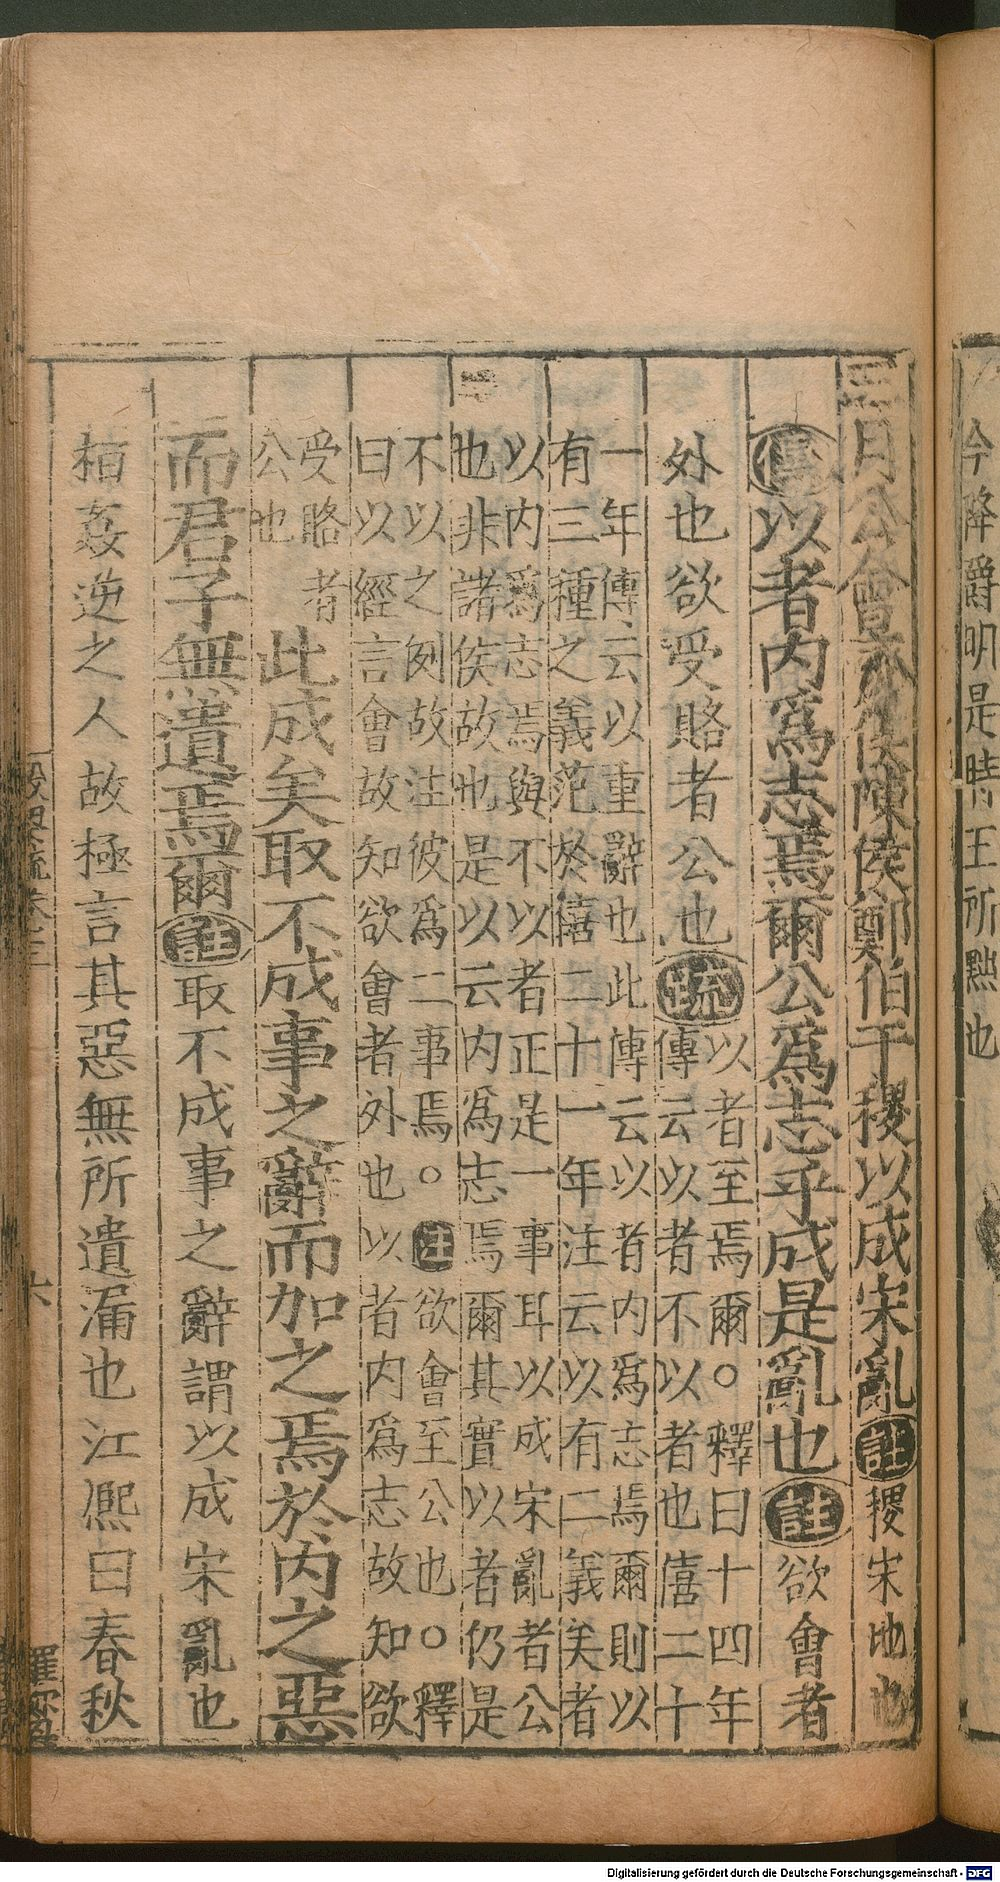 今降爵明是時王所黜也
三月公會齊侯陳侯鄭伯于稷以成宋亂註稷宋地也
傳以者內爲志焉爾公爲志乎成是亂也註欲會者
外也欲受賂者公也疏
以者至焉爾○釋曰十四年
傳云以者不以者也僖二十
一年傳云以重辭也此傳云以者內爲志焉爾則以
有三種之義范於僖二十一年注云以有二義矣者
以內爲志焉與不以者正是一事耳以成宋亂者公
也非諸侯故也是以云內爲志焉爾其實以者仍是
不以之例故注彼爲二事焉○注欲會至公也○釋
曰以經言會故知欲會者外也以者內爲志故知欲
受賂者
公也
此成矣取不成事之辭而加之焉於內之惡
而君子無遺焉爾註取不成事之辭謂以成宋亂也
桓姦逆之人故極言其惡無所遺漏也江熙曰春秋
六
Digitalisierung gefördert durch die Deutsche Forschungsgemeinschaft - DFG